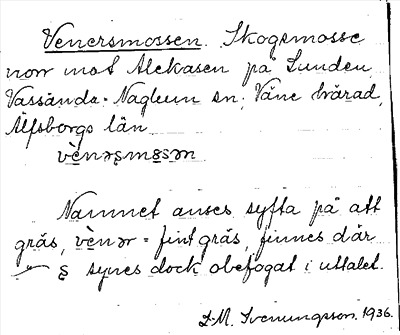 Venersmossen. Skogsmosse
norr mot Alekasen på Lunden
Vassända-Naglum sn, Väne härad,
Älfsborgs län
vènərsmosən
Namnet anses syfta på att
gräs, vènər = fint gräs, finnes där
s synes dock obefogat i uttalet.
L-M. Svenungsson. 1936.